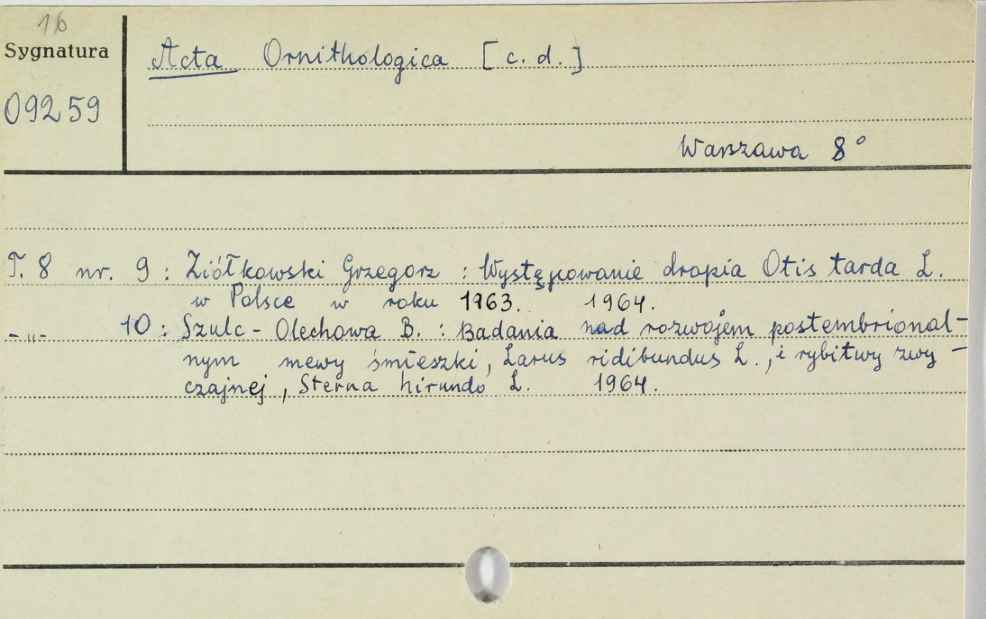 16
Sygnatura
09259
Acta Ornithologica [c. d.]
Warszawa 8°
T. 8 nr. 9 : Ziółkowski Grzegorz : Występowanie dropia Otis tarda L.
w Polsce w roku 1963. 1964.
-„- 10 : Szulc - Olechowa B. : Badania nad rozwojem postembrional-
nym mewy śmieszki, Larus ridibundus L., i rybitwy zwy-
czajnej, Sterna hirundo L. 1964.